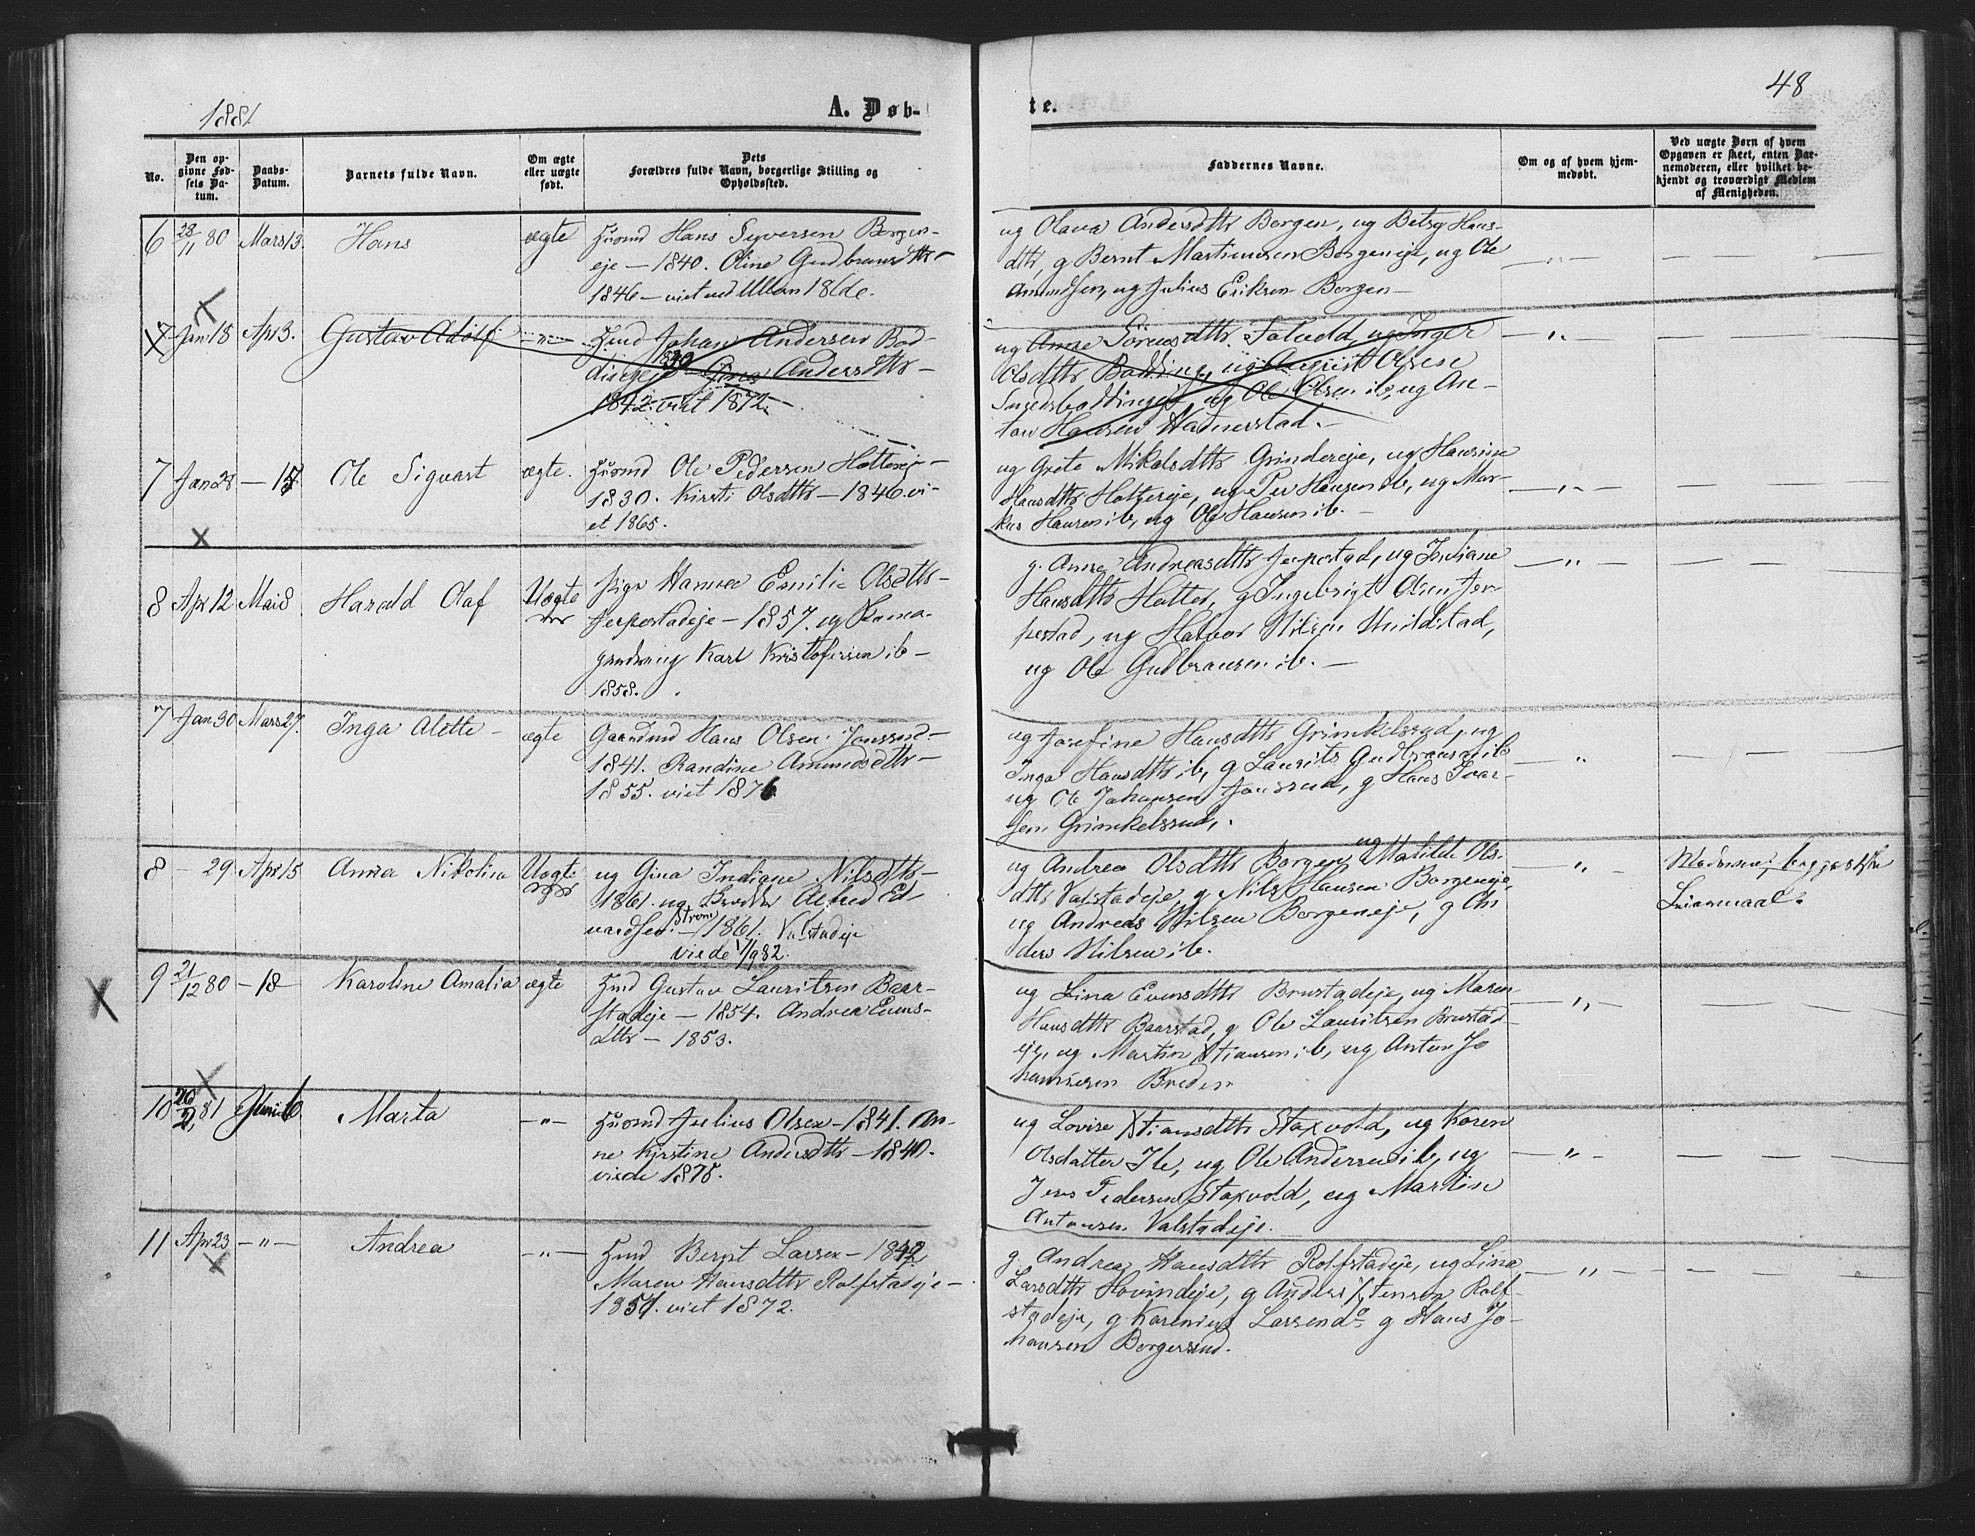 1881
A. Døb-
te.
48
No.
Den op-
givne Fød-
sels Da-
tum.
Daabs-
Datum.
Barnets fulde Navn.
Om ægte
eller uægte
født.
Dets
Forældres fulde Navn, borgerlige Stilling og
Opholdssted.
Faddernes Navne.
Om og af hvem hjem-
medøbt.
Ved uægte Børn af hvem
Opgaven er skeet, enten Bar-
nemoderen, eller hvilket be-
kjendt og troværdigt Medlem
af Menigheden.
6 28/11 80 Mars 13. Hans ægte Huusmd Hans Syversen Borgen-
eje — 1840. Oline Gudbransdttr —
1846 — viet ved Ullern 18
ug Olava Andersdttr Borgen, ug Betsy Hans-
dttr, g Bernt Martinusen Borgeneje, ug Ole
Amundsen, ug Julius Eriksen Borgen —
7 Jan 18 Apr 3. Gustav Adolf — " — Husmd Johan Andersen Bod-
dingeje 1839 Gina Andersdttr —
1842. viet 1872 —
ug Anne Sörensdttr Folvold, ug Inger
Olsdttr Bodding, ug August Olsen
ug Ole Olsen ib, ug An-
ton Hansen —
7 Jan 28 — 17 Ole Sigvart ægte. Huusmd Ole Pedersen Hottereje —
1830. Kirsti Olsdttr — 1846. vi-
et 1865.
ug Grete Mikalsdttr Grindereje, ug Hansine
Hansdttr Hottereje, ug Per Hansen ib, ug Mar-
kus Hansen ib, ug Ole Hansen ib. —
8 Apr 12 Mai 8 Harald Olaf Uægte Pige Hanna Emilie Olsdttr —
Jerpestadeje — 1857. ug
Karl Kristofersen ib —
1858.
g. Anne Andreasdttr Jerpestad, ug Indiane
Hansdttr Hotter, g Ingebrigt Olsen Jer-
pestad, ug Halvor Nilsen
ug Ole Gulbransen ib. —
7 Jan 30 Mars 27. Inga Alette — ægte Gaardmd Hans Olsen Jonsrud —
1841. Randine Amundsdttr —
1855. viet 1876
ug Josefine Hansdttr Grimkelsrud, ug
Inga Hansdttr ib, g Laurits Gudbransen ib
ug Ole Johansen Jonsrud, g Hans Ivar-
sen Grimkelsrud,
8 — 29 Apr 15 Anna Nikolina Uægte ug Gina Indiane Nilsdttr —
1861. ug Alfred Ed-
vardsen Strøm — 1861. Valstadeje
viede 1/9 82.
ug Andrea Olsdttr Borgen, ug Matilde Ols-
dttr Valstadeje, g Nils Hansen Borgeneje,
ug Andreas Nilsen Borgeneje, g An
ders Nilsen ib.
Moderens; begges 1ste
Leiermaal.
9 21/12 80 — 18 Karoline Amalia ægte Husmd Gustav Lauritsen Baar-
stadeje — 1854. Andrea Evens-
dttr — 1853.
ug Lina Evensdttr Brustadeje, ug Maren
Hansdttr Baarstad, g Ole Lauritsen Brustad-
eje, ug Martin Xtiansen ib, ug Anton Jo
hannesen Breden
10 26/2 81 Juni 6 Marta — " — Huusmd Julius Olsen — 1841. An-
ne Kirstine Andersdttr — 1840.
viede 1878.
ug Lovise Xtiansdttr Stoxvold, ug Karen
Olsdatter Ib, ug Ole Andersen ib, ug
Jens Pedersen Stoxvold, ug Martin
Antonsen Valstadeje.
11 Apr 23 — " — Andrea — " — Husmd Bernt Larsen — 1842
Maren Hansdttr Rolfstadeje —
1851. viet 1872.
g Andrea Hansdttr Rolfstadeje, ug Lina
Larsdttr Hovindeje, g Anders Xtensen Rolf-
stadeje, g Karenius Larsen do g Hans Jo-
hansen Borgersrud.